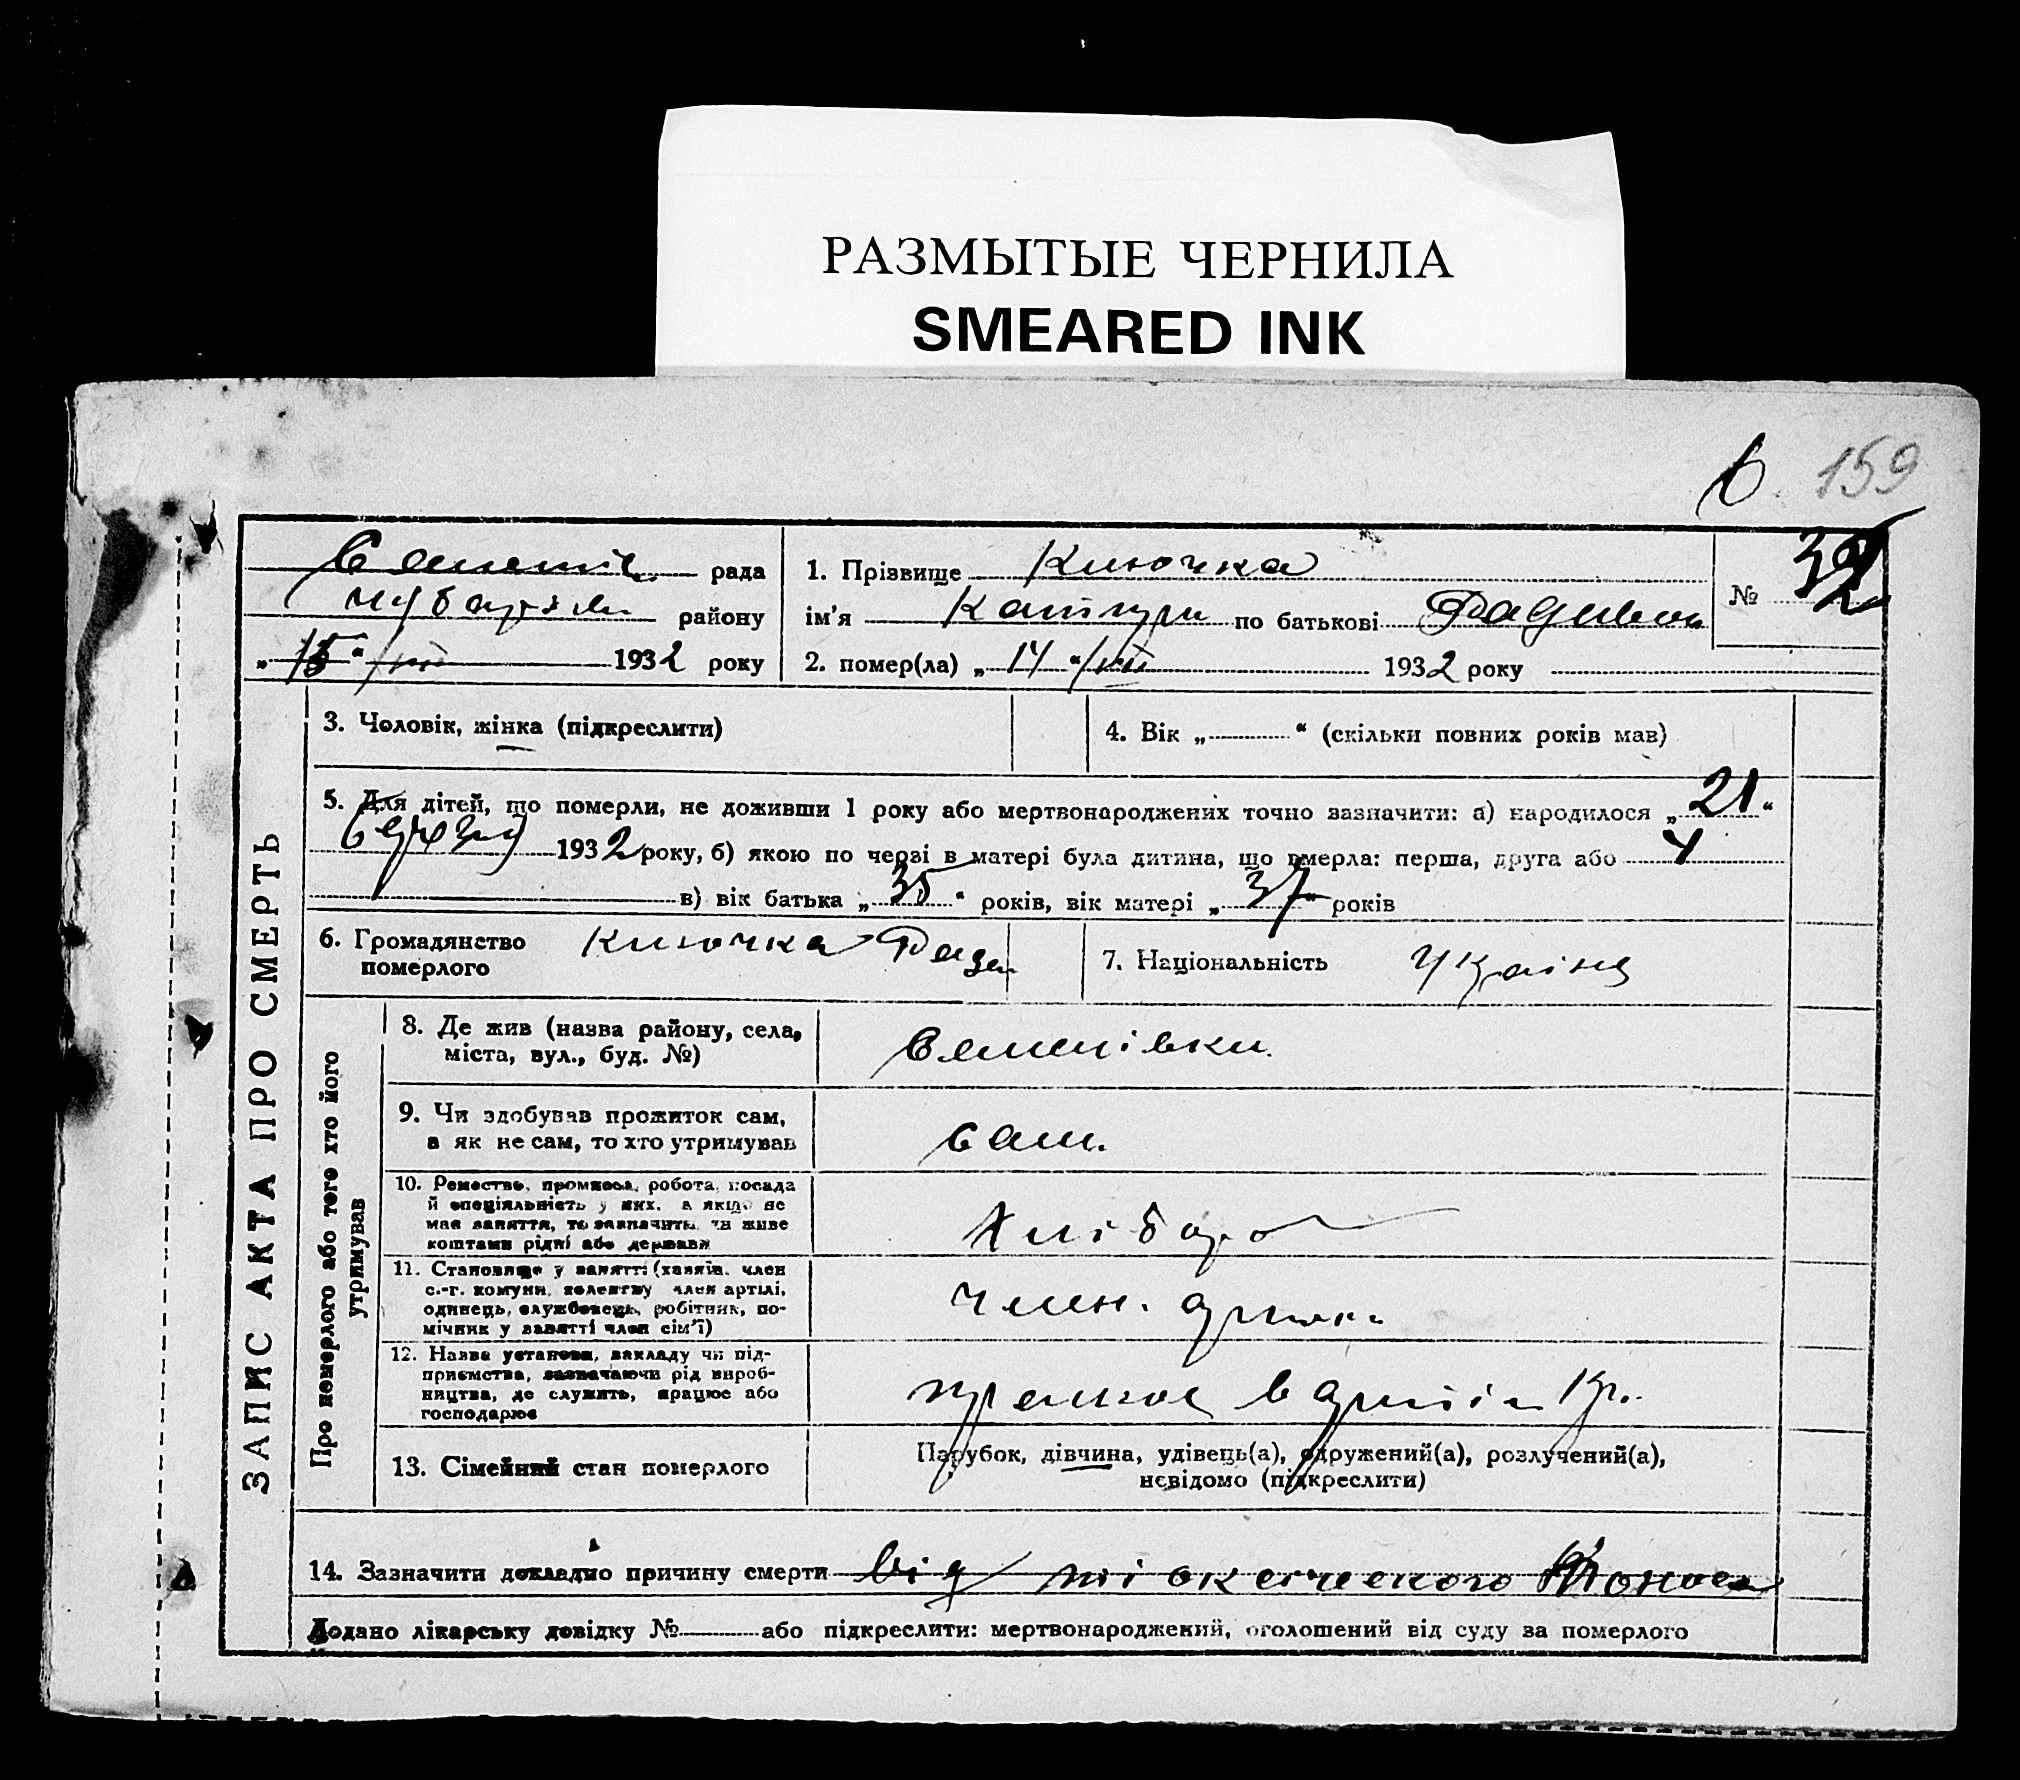 РАЗМЫТЫЕ ЧЕРНИЛА
SMEARED INK
159
рада
району
„15“ /VII 1932 року
1. Прізвище Ключка
№
ім'я по батькові
2. помер(ла) „14“/VII 1932 року
3. Чоловік, жінка (підкреслити)
4. Вік „ “ (скільки повних років мав)
5. Для дітей, що померли, не доживши 1 року або мертвонароджених точно зазначити: а) народилося „21“
1932 року, б) якою по черзі в матері була дитина, що вмерла: перша, друга або 4
в) вік батька „35“ років, вік матері „37“ років
6. Громадянство
померлого
Ключка
7. Національність
ЗАПИС АКТА ПРО СМЕРТЬ
Про померлого або того хто його
утримував
8. Де жив (назва району, села,
міста, вул., буд. №)
Семенівки
9. Чи здобував прожиток сам,
а як не сам, то хто утримував
сам.
10. Ремество, промисел, робота, посада
й спеціяльність у них, а якщо не
мав заняття, то зазначить, чи живе
коштами рідні або держави
Хлібороб
11. Становище у занятті (хазяїн, член
с.-г. комуни, колективу член артілі,
одинець, службовець, робітник, по-
мічник у занятті член сім'ї)
член.
12. Назва установи, закладу чи під-
приємства, зазначаючи рід вироб-
ництва, де служить, працює або
господарює
в артілі
13. Сімейний стан померлого
Парубок, дівчина, удівець(а), одружений(а), розлучений(а),
невідомо (підкреслити)
14. Зазначити докладно причину смерти від
Додано лікарську довідку № або підкреслити: мертвонароджений, оголошений від суду за померлого